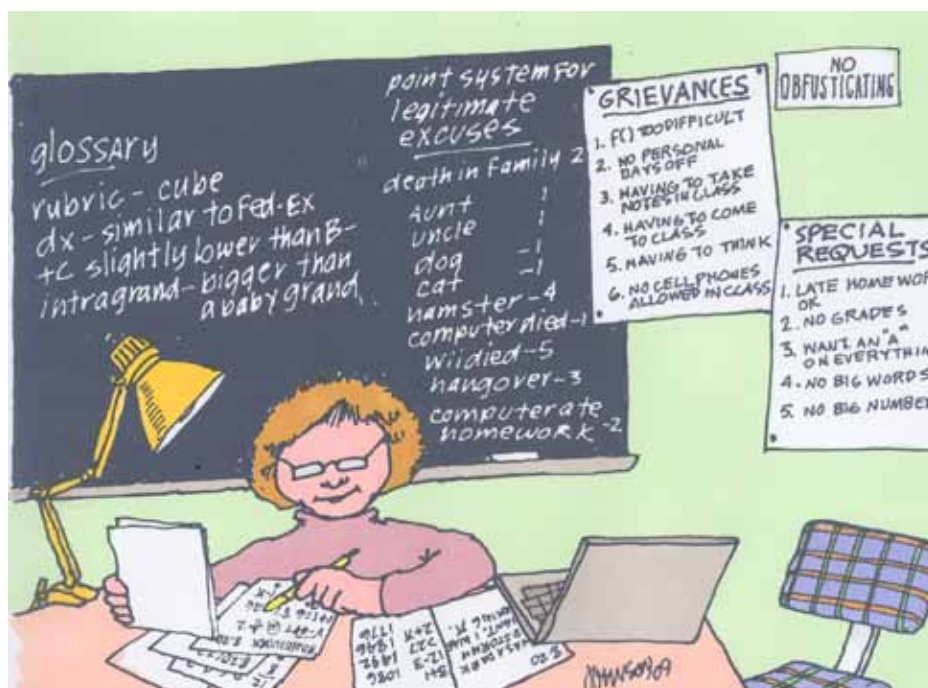 glossary
rubric - cube
dx - similar to Fed-Ex
+C slightly lower than B-
intragrand - bigger than
a baby grand
point system for
legitimate
excuses
death in Family 2
Aunt 1
uncle 1
dog -1
cat -1
hamster -4
computer died -1
wii died -5
hangover -3
computer ate
homework -2
GRIEVANCES
1. F() TOO DIFFICULT
2. NO PERSONAL
DAYS OFF
3. HAVING TO TAKE
NOTES IN CLASS
4. HAVING TO COME
TO CLASS
5. HAVING TO THINK
6. NO CELL PHONES
ALLOWED IN CLASS
NO
OBFUSTICATING
SPECIAL
REQUESTS
1. LATE HOMEWOR
OK
2. NO GRADES
3. WANT AN "A"
ON EVERYTHIN
4. NO BIG WORDS
5. NO BIG NUMBE
1776
1846
1492
1086